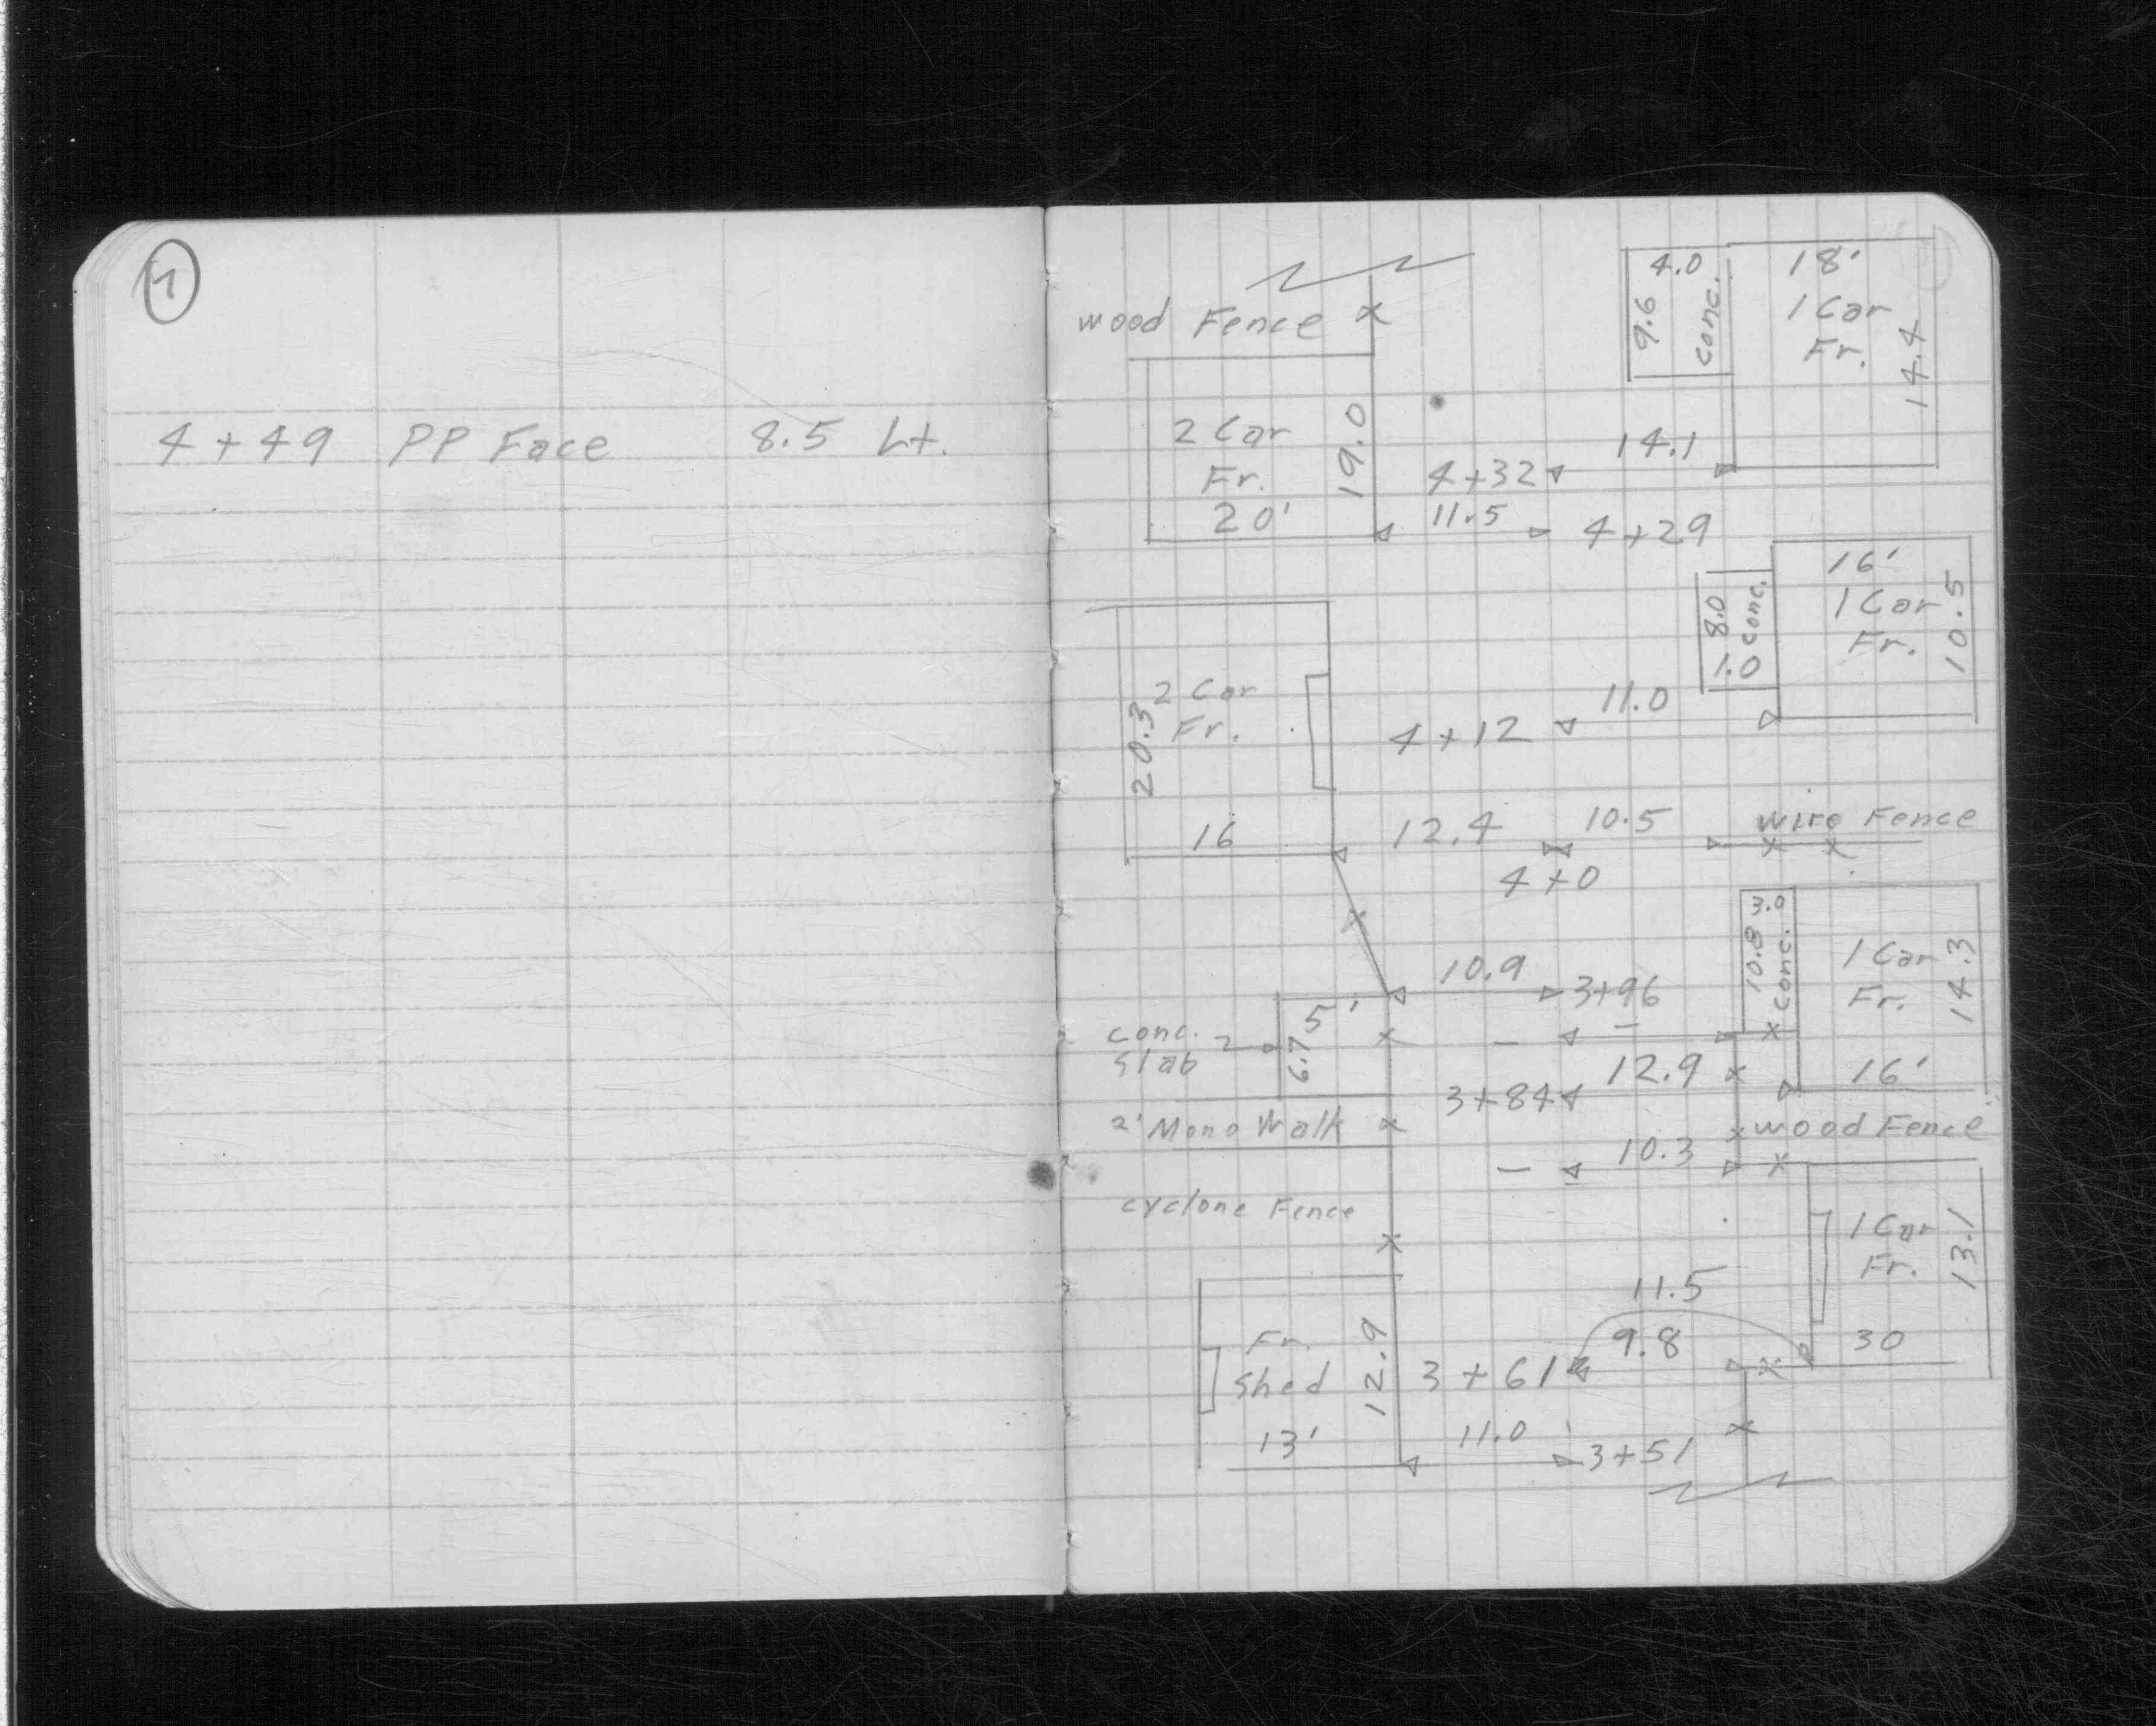 1
4+49 PP Face 8.5 Lt.
4.0
18'
wood Fence
9.6
conc.
1 Car
Fr.
14.4
2 Car
Fr.
20'
19.0
14.1
4+32
11.5
4+29
16'
1 Car
Fr.
10.5
8.0
conc.
1.0
2 Car
Fr.
20.3
16
11.0
4+12
12.4
10.5
wire Fence
4+0
3.0
10.8
conc.
1 Car
Fr.
14.3
16'
10.9
3+96
conc.
slab
5'
6.7
12.9
3+84
2' Mono Walk
wood Fence
10.3
cyclone Fence
1 Car
Fr.
13.1
30
11.5
9.8
Fr.
Shed
12.9
13'
3+61
11.0
3+51